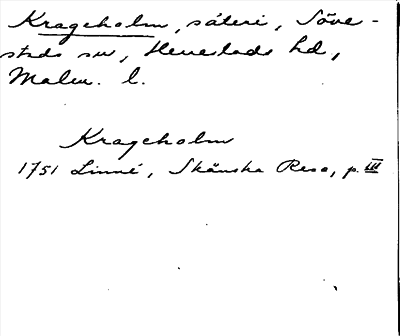 Krageholm, säteri, Söve-
stads sn, Herrestads hd,
Malm. l.
Krageholm
1751 Linné, Skånska Resa, p. III